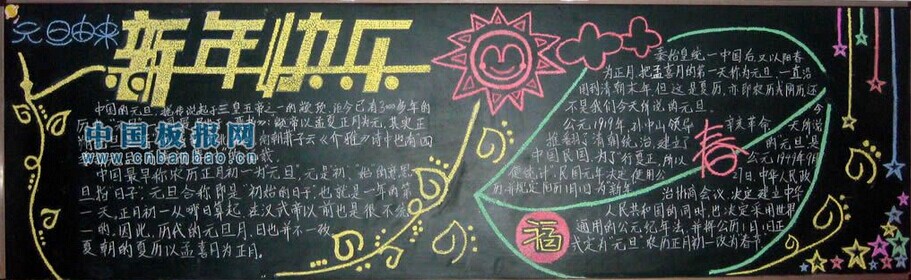 元旦由来
新年快乐
中国的元旦,据传说起于三皇五帝之一的颛顼,距今已有3000多年的
中国板报网
www.cnbanbao.cn
中国最早称农历正月初一为元旦,元是初、始的意思,
旦指日子,元旦合称即是"初始的日子"也就是一年的第
一天,正月初一从哪日算起在汉武帝以前也是很不统
一的。因此,历代的元旦月、日也并不一致
夏朝的夏历以孟喜月为正月。
秦始皇统一中国后,又以阳春
为正月,把孟喜月的第一天称为元旦,一直沿
用到清朝末年但这是夏历,亦即农历或阴历还
不是我们今天所说的元旦。
公元1919年,孙中山领导
推翻了清朝统治,建立了
中国民国。为了"行夏正,所以
春
今天所说
的元旦是
公元1949年9月
27日,中华人民政
治协商会议,决定建立中华
人民共和国的同时,也决定采用世界
通用的公元纪年法,并将公历1月1日正
式定为"元旦"农历正月初一改为春节。
福